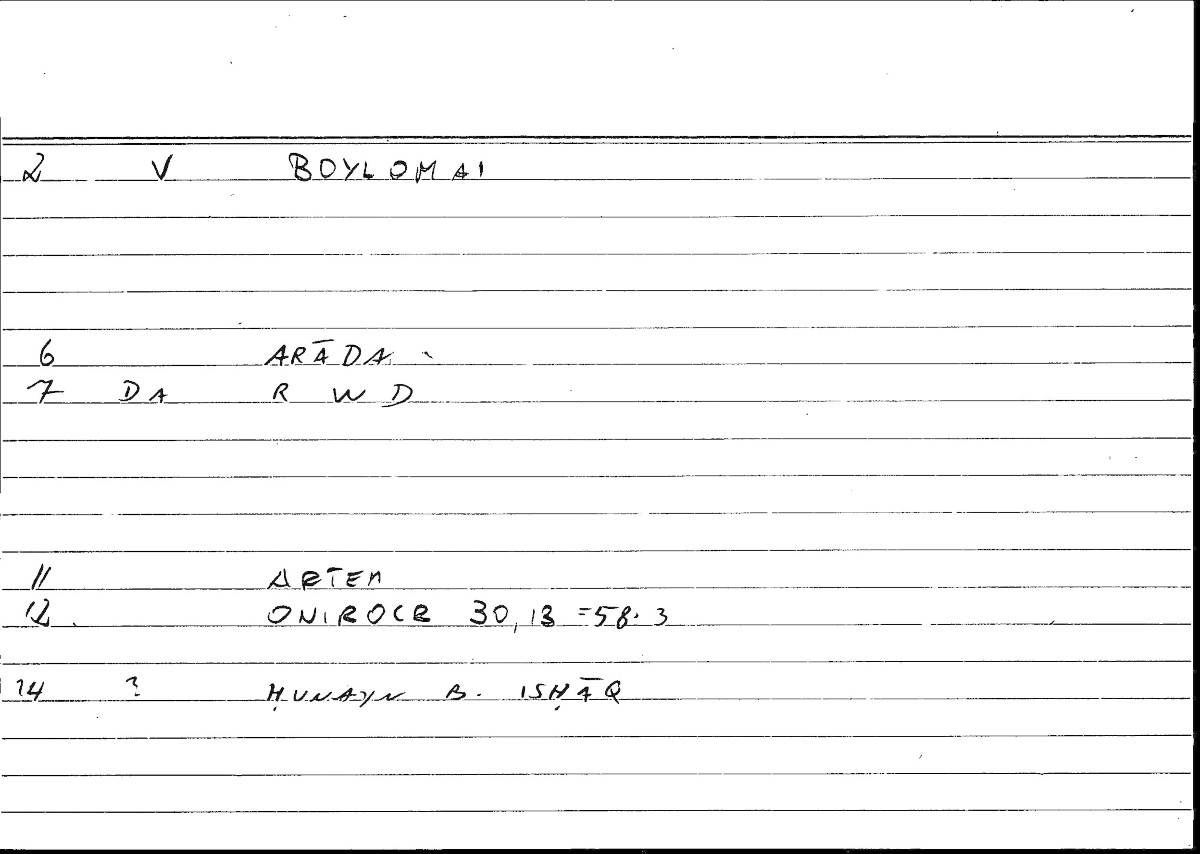 2 V BOYLOMAI
6 ARĀDA
7 DA R W D
11 ARTEM
12 ONIROCR 30,13 =58.3
14 ? ḤUNAYN B. ISḤĀQ